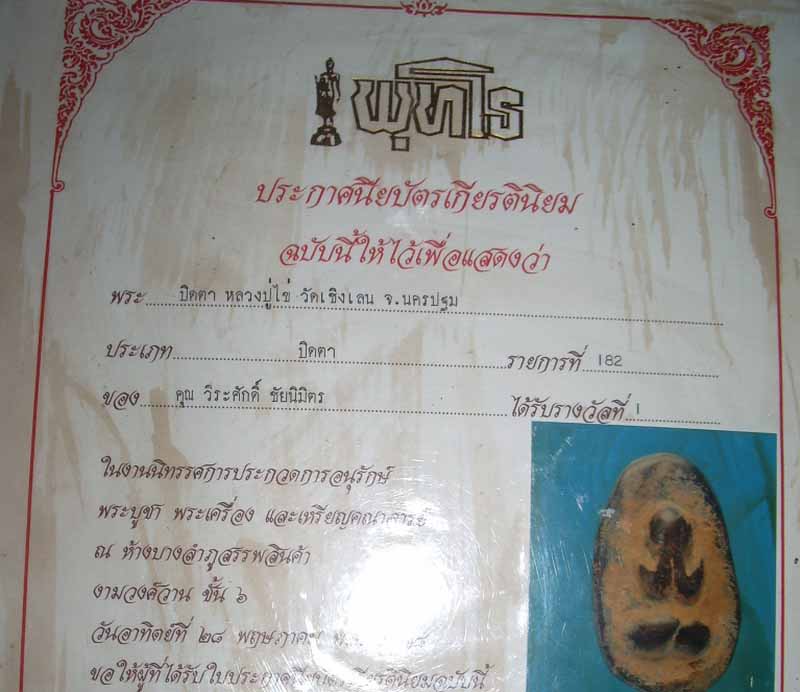 พุทโธ
ประกาศนียบัตรเกียรตินิยม
ฉบับนี้ให้ไว้เพื่อแสดงว่า
พระ ปิดตา หลวงปู่ไข่ วัดเชิงเลน จ.นครปฐม
ประเภท ปิดตา รายการที่ 182
ของ คุณ วีระศักดิ์ ชัยนิมิตร ได้รับรางวัลที่ 1
ในงานนิทรรศการประกวดการอนุรักษ์
พระบูชา พระเครื่อง และเหรียญคณาจารย์
ณ ห้างบางลำภูสรรพสินค้า
งามวงศ์วาน ชั้น ๖
วันอาทิตย์ที่ ๒๘ พฤษภาคม
ขอให้ผู้ที่ได้รับใบประกาศนียบัตรเกียรตินิยมฉบับนี้